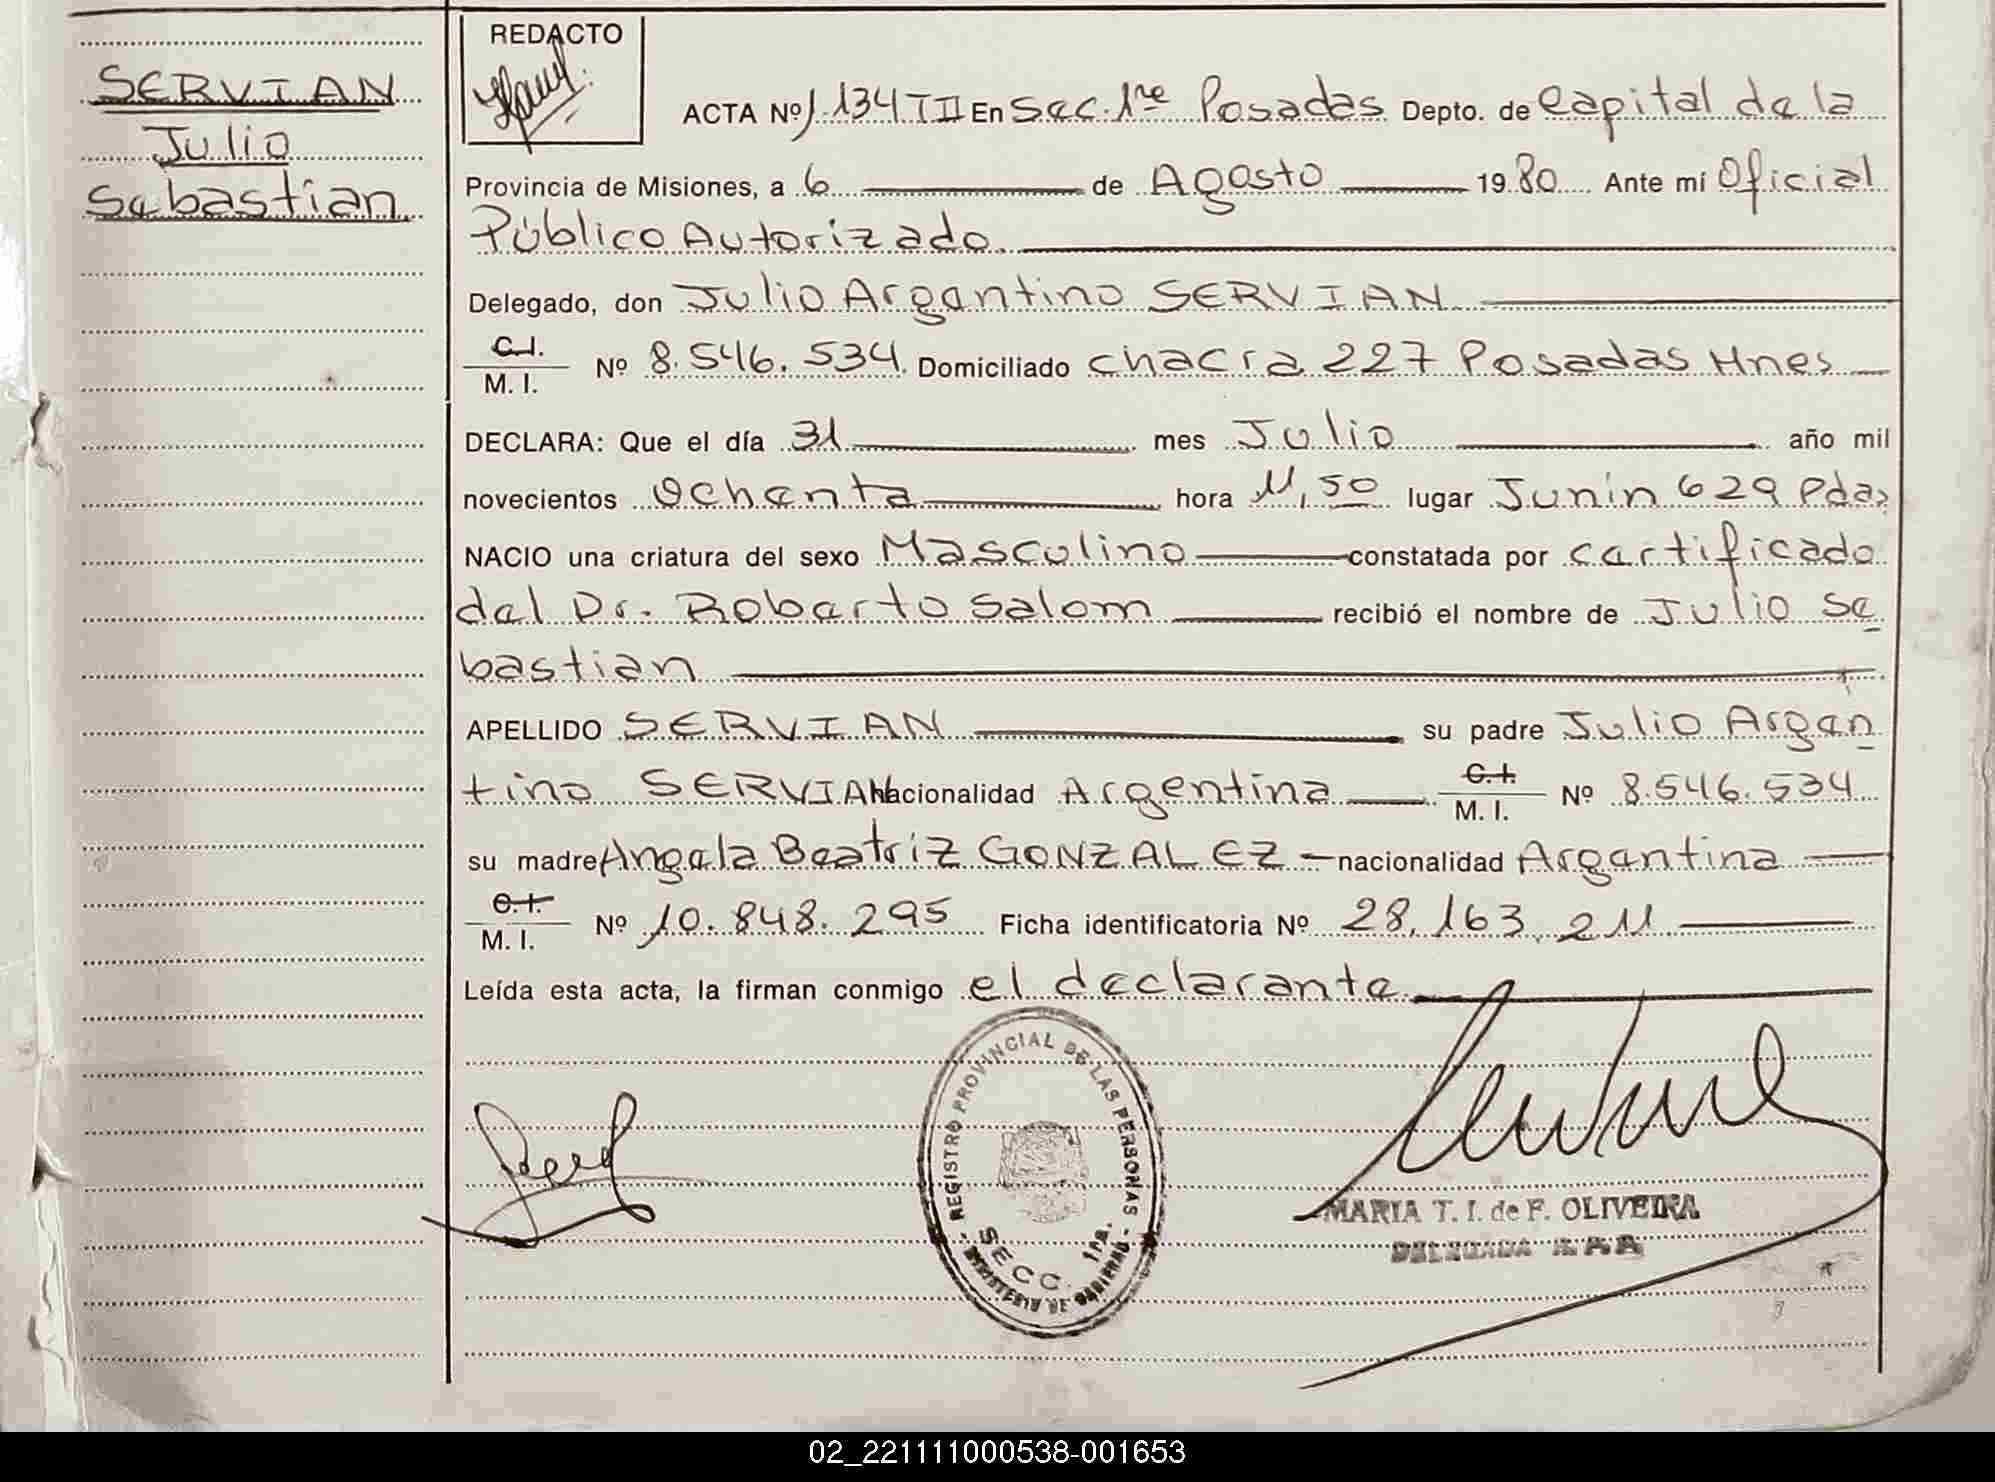 SERVIAN
Julio
Sebastian
REDACTO
ACTA Nº 1.134 TII En Sec. 1re Posadas Depto. de Capital de la
Provincia de Misiones, a 6 de Agosto 1980 Ante mí Oficial
Público Autorizado
Delegado, don Julio Argentino SERVIAN
C.I.
M. I. Nº 8.546.534 Domiciliado chacra 227 Posadas Mnes
DECLARA: Que el día 31 mes Julio año mil
novecientos Ochenta hora 11,50 lugar Junín 629 Pdas
NACIO una criatura del sexo Masculino constatada por certificado
del Dr. Roberto Salom recibió el nombre de Julio Se
bastian
APELLIDO SERVIAN su padre Julio Argen
tino SERVIAN nacionalidad Argentina C.I.
M. I. Nº 8.546.534
su madre Angela Beatriz GONZALEZ nacionalidad Argentina
C.I.
M. I. Nº 10.848.295 Ficha identificatoria Nº 28.163.211
Leída esta acta, la firman conmigo el declarante
REGISTRO PROVINCIAL DE LAS PERSONAS
MINISTERIO DE GOBIERNO
SECC. 1ra.
MARIA T. I. de F. OLIVEIRA
DELEGADA
02_221111000538-001653